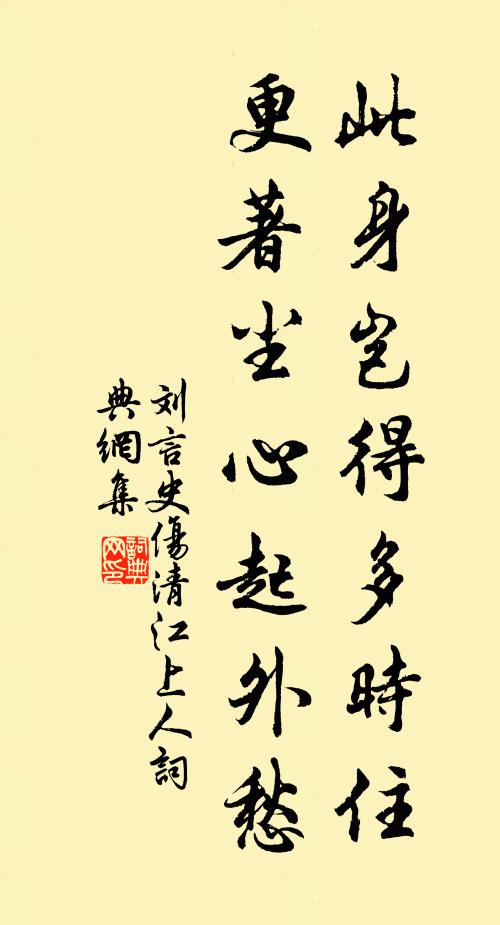 此身岂得多時住
更著尘心起外愁
刘言史傷清江上人詞
典網集
詞典
网印